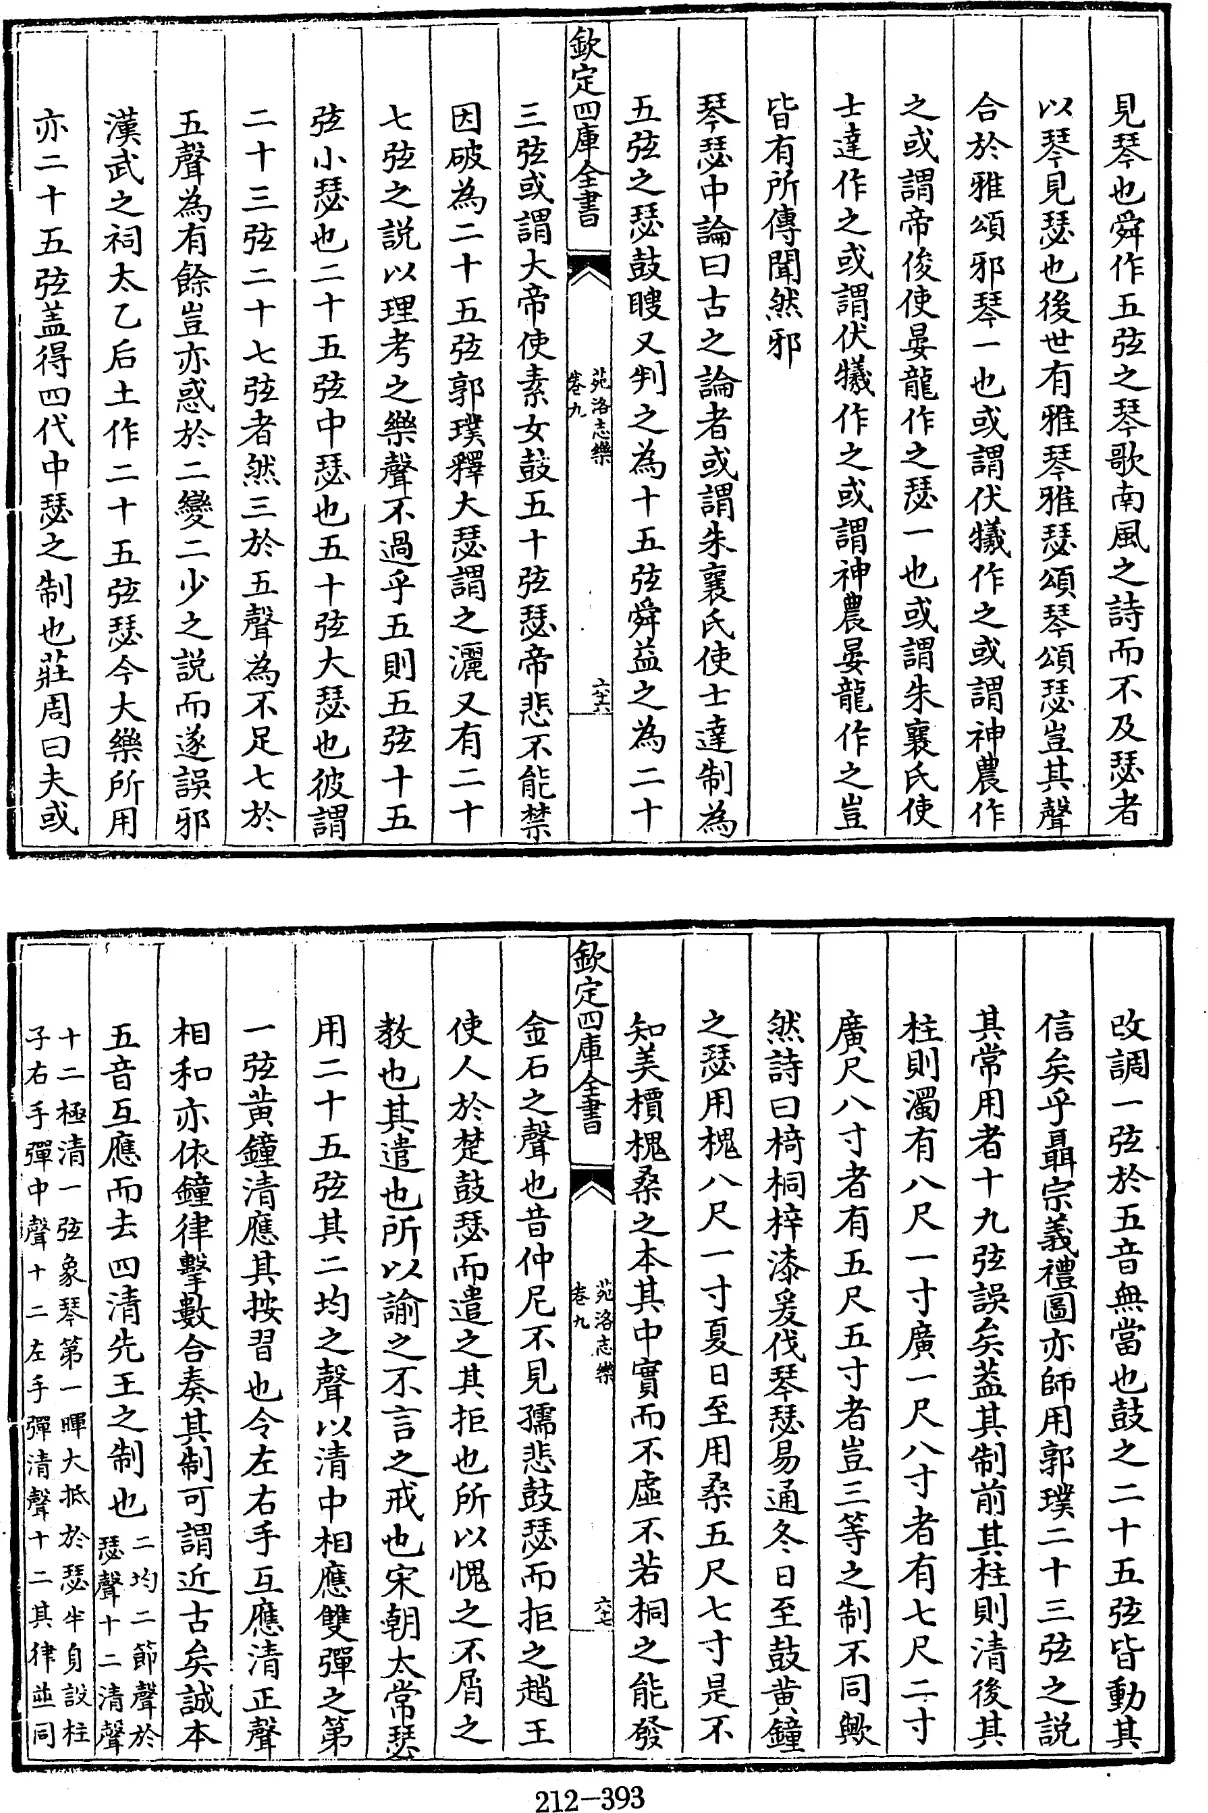 見琴也舜作五弦之琴歌南風之詩而不及瑟者
以琴見瑟也後世有雅琴雅瑟頌琴頌瑟豈其聲
合於雅頌邪琴一也或謂伏犧作之或謂神農作
之或謂帝俊使晏龍作之瑟一也或謂朱襄氏使
士達作之或謂伏犧作之或謂神農晏龍作之豈
皆有所傳聞然邪
琴瑟中論曰古之論者或謂朱襄氏使士達制為
五弦之瑟鼓瞍又判之為十五弦舜益之為二十
欽定四庫全書
苑洛志樂
卷九
六十六
三弦或謂大帝使素女鼓五十弦瑟帝悲不能禁
因破為二十五弦郭璞釋大瑟謂之灑又有二十
七弦之説以理考之樂聲不過乎五則五弦十五
弦小瑟也二十五弦中瑟也五十弦大瑟也彼謂
二十三弦二十七弦者然三於五聲為不足七於
五聲為有餘豈亦惑於二變二少之説而遂誤邪
漢武之祠太乙后土作二十五弦瑟今大樂所用
亦二十五弦盖得四代中瑟之制也莊周曰夫或
改調一弦於五音無當也鼓之二十五弦皆動其
信矣乎聶宗義禮圖亦師用郭璞二十三弦之説
其常用者十九弦誤矣葢其制前其柱則清後其
柱則濁有八尺一寸廣一尺八寸者有七尺二寸
廣尺八寸者有五尺五寸者豈三等之制不同歟
然詩曰椅桐梓漆爰伐琴瑟易通冬日至鼓黄鐘
之瑟用槐八尺一寸夏日至用桑五尺七寸是不
知美檟槐桑之本其中實而不虚不若桐之能發
欽定四庫全書
苑洛志樂
卷九
六七
金石之聲也昔仲尼不見孺悲鼓瑟而拒之趙王
使人於楚鼓瑟而遣之其拒也所以愧之不屑之
教也其遣也所以諭之不言之戒也宋朝太常瑟
用二十五弦其二均之聲以清中相應雙彈之第
一弦黄鐘清應其按習也令左右手互應清正聲
相和亦依鐘律擊數合奏其制可謂近古矣誠本
五音互應而去四清先王之制也
二均二節聲於
瑟聲十二清聲
十二極清一弦象琴第一暉大抵於瑟半身設柱
子右手彈中聲十二左手彈清聲十二其律並同
212-393